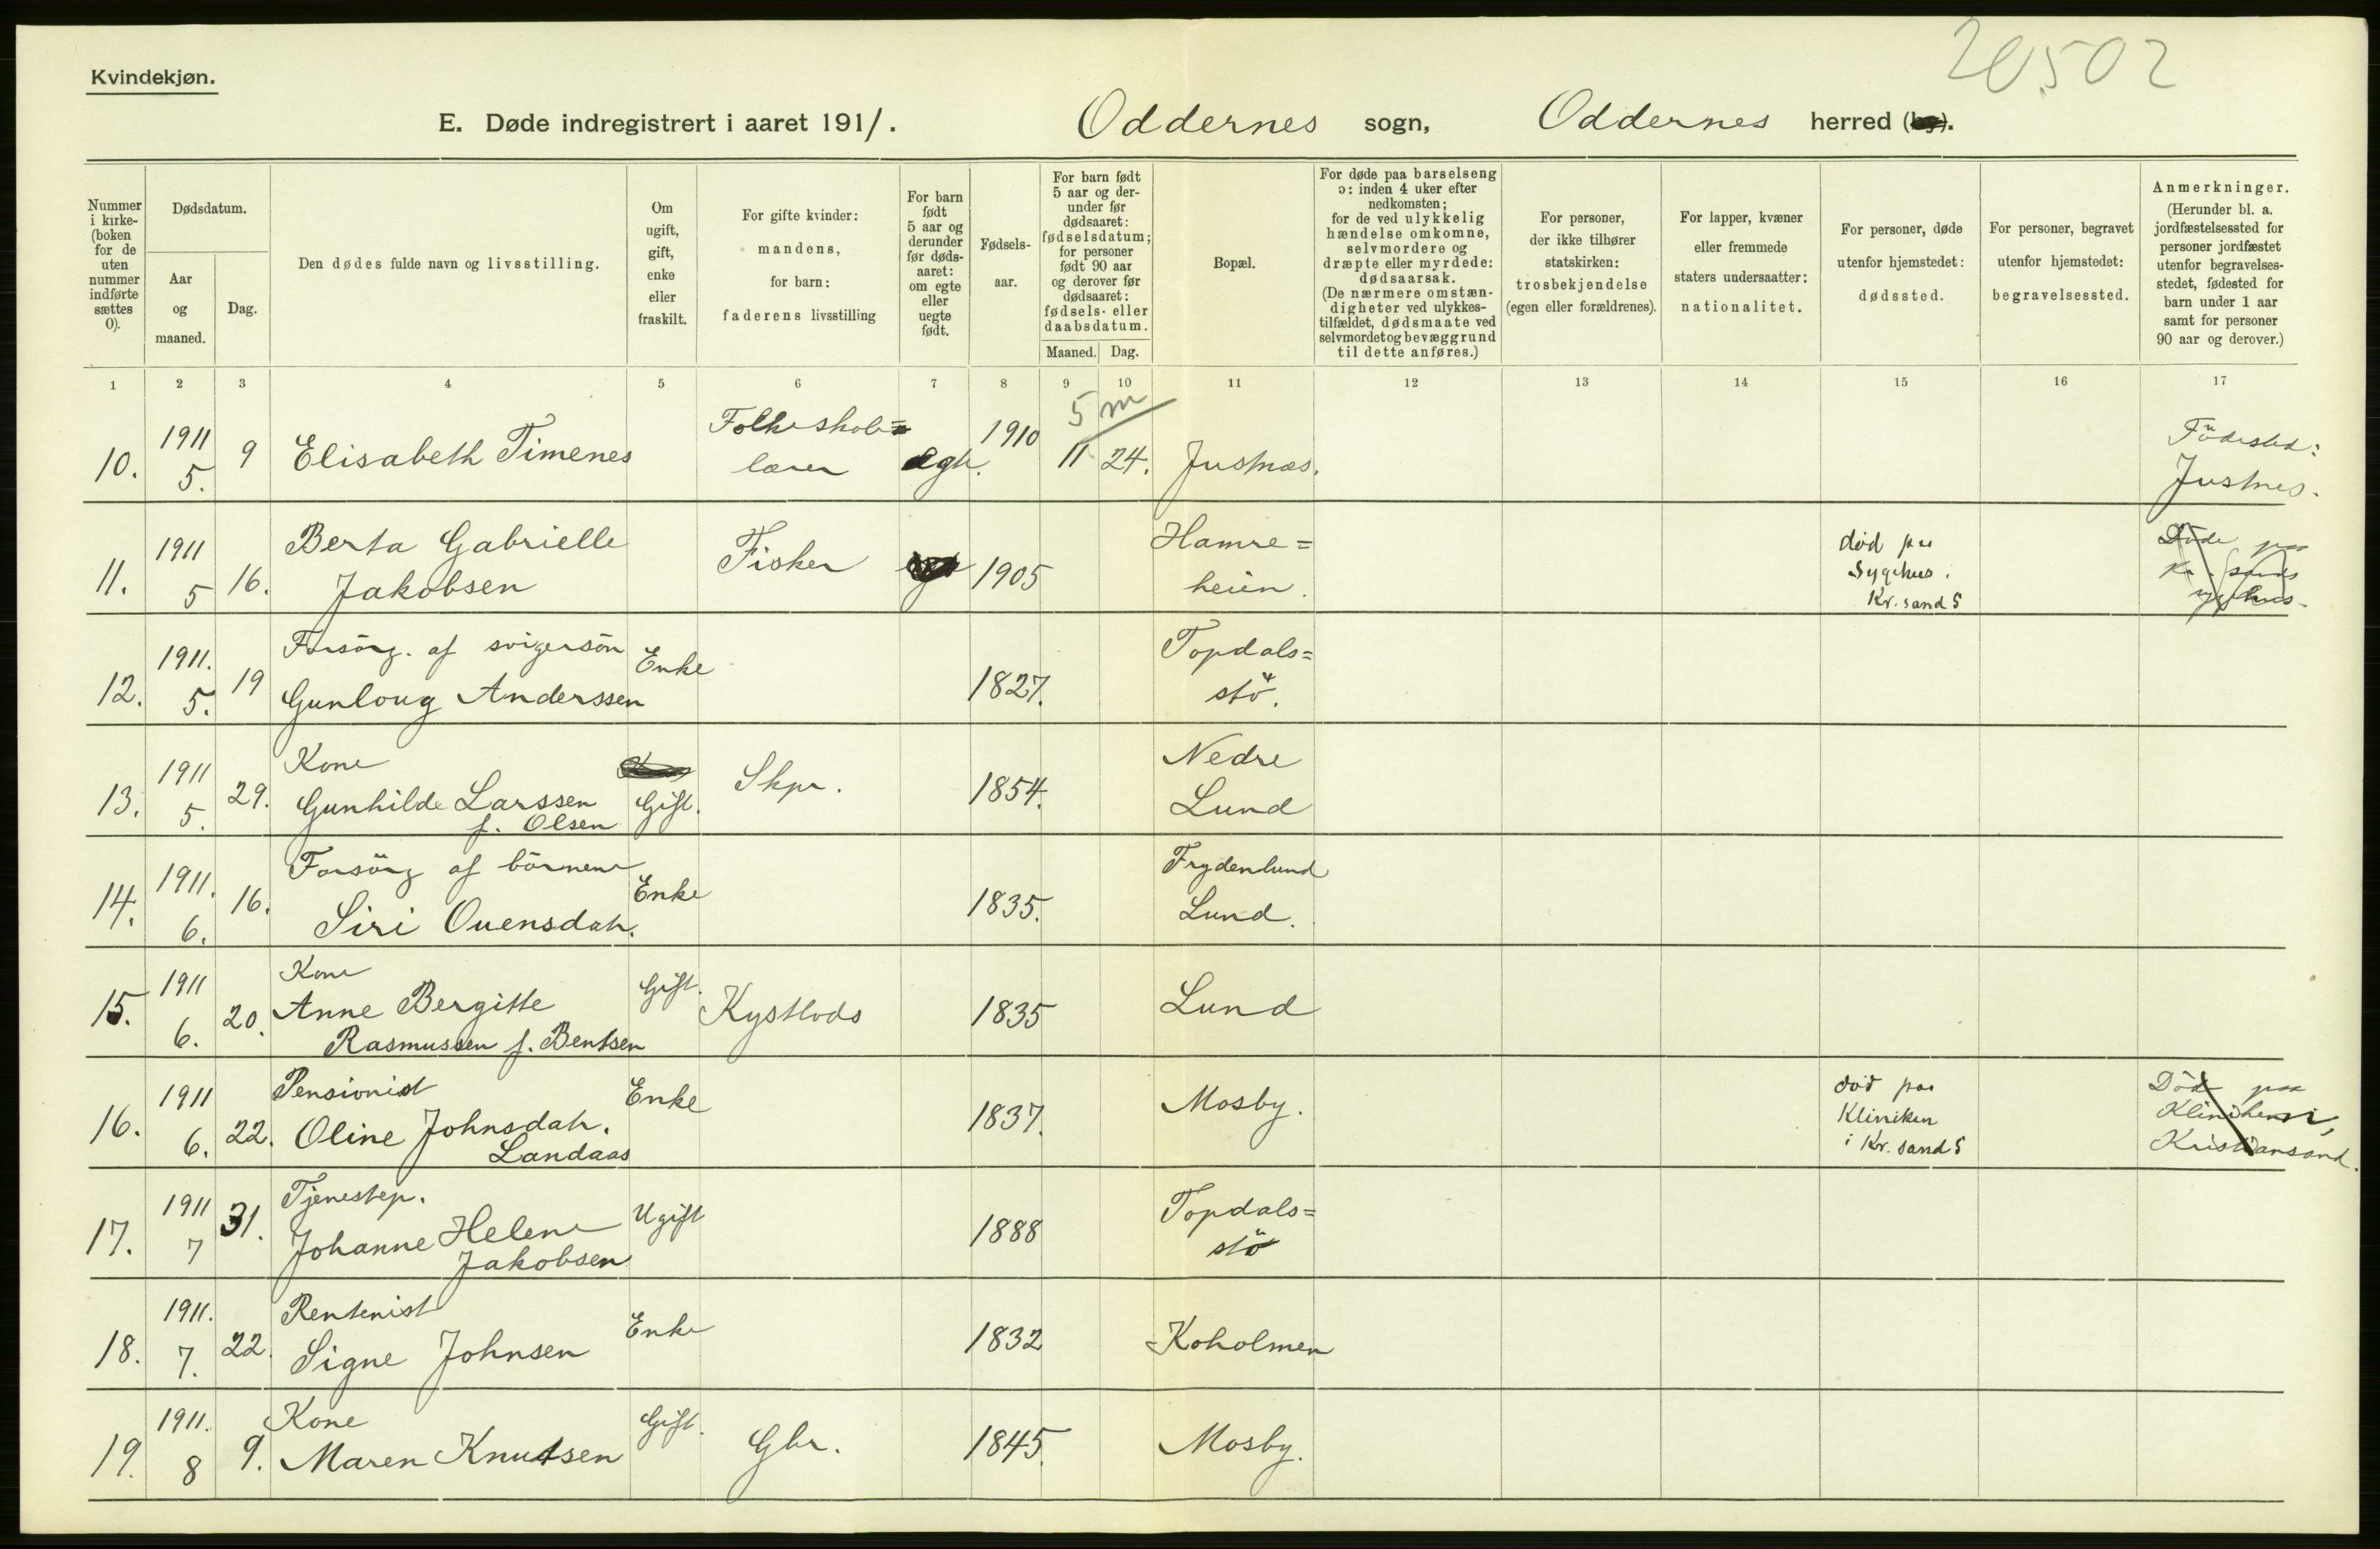 20502
Kvindekjøn.
E. Døde indregistrert i aaret 1911. Oddernes sogn, Oddernes herred (by).
Nummer i kirke-(boken for de uten nummer indførte sættes 0).
Dødsdatum.
Aar og maaned.
Dag.
Den dødes fulde navn og livsstilling.
Om ugift, gift, enke eller fraskilt.
For gifte kvinder: mandens, for barn: faderens livsstilling
For barn født 5 aar og derunder før døds-aaret: om egte eller uegte født.
Fødsels-aar.
For barn født 5 aar og der-under før dødsaaret: fødselsdatum; for personer født 90 aar og derover før dødsaaret: fødsels- eller daabsdatum.
Maaned. Dag.
Bopæl.
For døde paa barselseng ɔ: inden 4 uker efter nedkomsten; for de ved ulykkelig hændelse omkomne, selvmordere og dræpte eller myrdede: dødsaarsak. (De nærmere omstæn-digheter ved ulykkes-tilfældet, dødsmaate ved selvmordet og bevæggrund til dette anføres.)
For personer, der ikke tilhører statskirken: trosbekjendelse (egen eller forældrenes).
For lapper, kvæner eller fremmede staters undersaatter: nationalitet.
For personer, døde utenfor hjemstedet: dødssted.
For personer, begravet utenfor hjemstedet: begravelsessted.
Anmerkninger. (Herunder bl. a. jordfæstelsessted for personer jordfæstet utenfor begravelses-stedet, fødested for barn under 1 aar samt for personer 90 aar og derover.)
1 2 3 4 5 6 7 8 9 10 11 12 13 14 15 16 17
5 m
10. 1911 5. 9 Elisabeth Timenes Folkeskole= lærer egte. 1910 11 24. Justnæs. Födested: Justnes.
11. 1911 5 16. Berta Gabrielle Jakobsen Fisker 1905 Hamre= heien. död paa Sygehus. Kr.sand S
12. 1911. 5. 19 Forsörg. af svigersön Gunloug Anderssen Enke 1827. Topdals= stö.
13. 1911 5. 29. Kone Gunhilde Larssen f. Olsen Gift. Skpr. 1854. Nedre Lund
14. 1911. 6. 16. Forsörg af börnene Siri Ouensdatr. Enke 1835. Frydenlund Lund.
15. 1911 6. 20. Kone Anne Bergitte Rasmussen f. Bentsen Gift. Kystlods 1835 Lund
16. 1911 6. 22. Pensionist Oline Johnsdatr. Landaas Enke 1837. Mosby. död paa Kliniken i Kr.sand S Död paa Kliniken i, Kristiansand.
17. 1911 7 31. Tjenestep. Johanne Helene Jakobsen Ugift 1888 Topdals= stö
18. 1911. 7. 22. Rentenist Signe Johnsen Enke 1832 Koholmen
19. 1911. 8 9. Kone Maren Knutsen Gift. Gbr. 1845. Mosby.